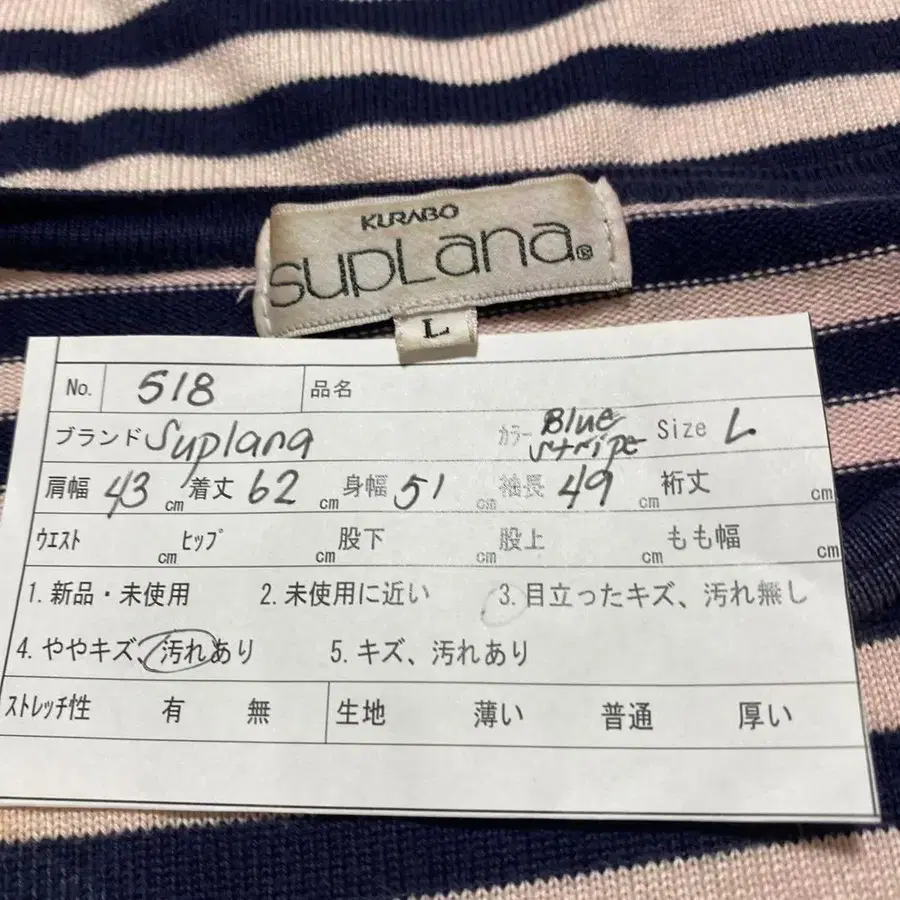 KURABO
supLana®
L
No. 518 品名
ブランド Suplana カラー Blue stripe Size L
肩幅 43 cm 着丈 62 cm 身幅 51 cm 袖長 49 cm 裄丈 cm
ウエスト cm ヒップ cm 股下 cm 股上 cm もも幅 cm
1. 新品・未使用 2. 未使用に近い 3. 目立ったキズ、汚れ無し
4. ややキズ、汚れあり 5. キズ、汚れあり
ストレッチ性 有 無 生地 薄い 普通 厚い